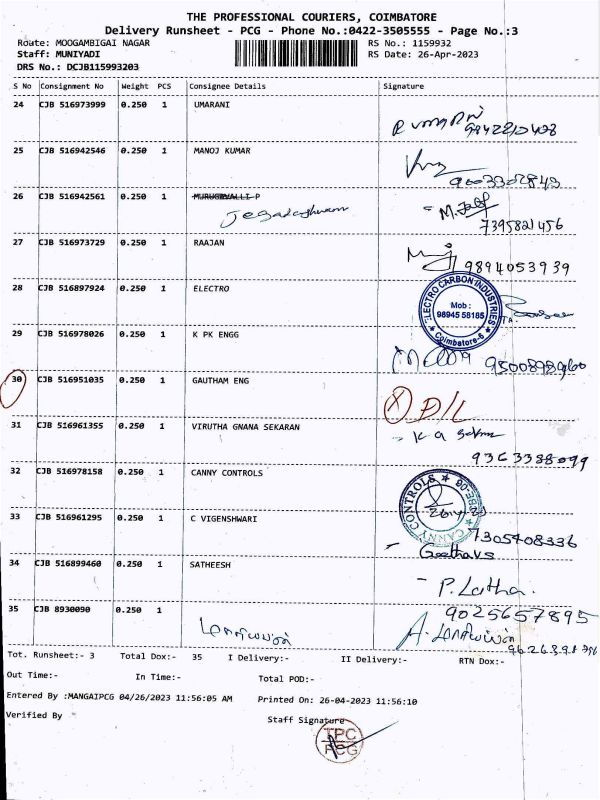 THE PROFESSIONAL COURIERS, COIMBATORE
Delivery Runsheet - PCG - Phone No.:0422-3505555 - Page No.:3
Route: MOOGAMBIGAI NAGAR RS No.: 1159932
Staff: MUNIYADI RS Date: 26-Apr-2023
DRS No.: DCJB115993203
S No Consignment No Weight PCS Consignee Details Signature
24 CJB 516973999 0.250 1 UMARANI
25 CJB 516942546 0.250 1 MANOJ KUMAR
26 CJB 516942561 0.250 1
7395821456
27 CJB 516973729 0.250 1 RAAJAN
9894053939
28 CJB 516897924 0.250 1 ELECTRO
ELECTRO CARBON INDUSTRIES
Mob :
98945 58185
Coimbatore-6
29 CJB 516978026 0.250 1 K PK ENGG
30 CJB 516951035 0.250 1 GAUTHAM ENG
X D/L
31 CJB 516961355 0.250 1 VIRUTHA GNANA SEKARAN
9363388099
32 CJB 516978158 0.250 1 CANNY CONTROLS
CANNY CONTROLS
33 CJB 516961295 0.250 1 C VIGENSHWARI
7305408336
34 CJB 516899460 0.250 1 SATHEESH
- P. Latha.
9025657895
35 CJB 8930090 0.250 1
Tot. Runsheet:- 3 Total Dox:- 35 I Delivery:- II Delivery:- RTN Dox:-
Out Time:- In Time:- Total POD:-
Entered By :MANGAIPCG 04/26/2023 11:56:05 AM Printed On: 26-04-2023 11:56:10
Verified By Staff Signature
TPC
PCG